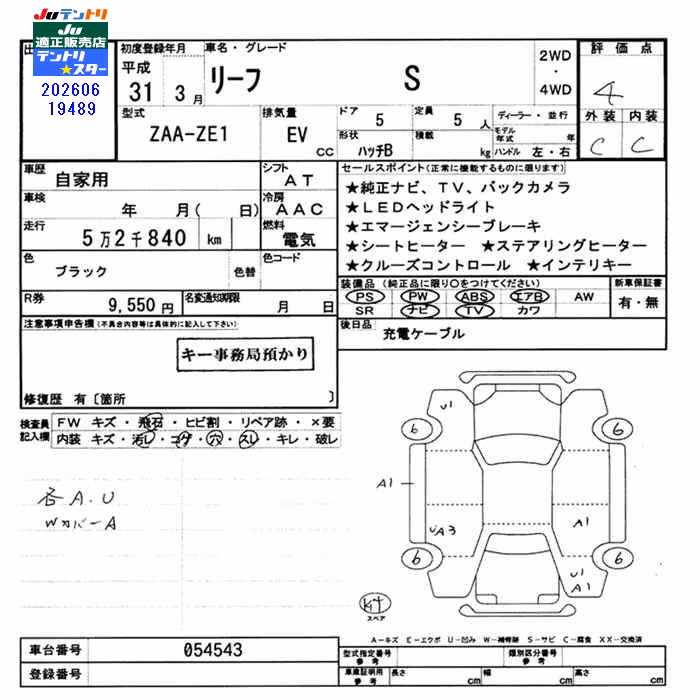 Juテントリ
Ju
適正販売店
テントリ
★スター
202606
19489
出
初度登録年月
平成
31 3月
車名・グレード
リーフ S
2WD
・
4WD
評価点
4
外装 内装
C C
型式
ZAA-ZE1
排気量
EV
CC
ドア
5
定員
5 人
形状
ハッチB
積載
kg
ディーラー・並行
モデル年式 年
ハンドル 左・右
車歴
自家用
シフト
AT
車検
年 月( 日)
冷房
AAC
走行
5万2千840 km
燃料
電気
色
ブラック
色替
色コード
R券
9,550円
名変通知期限
月 日
セールスポイント(正常に機能するものに限ります)
★純正ナビ、TV、バックカメラ
★LEDヘッドライト
★エマージェンシーブレーキ
★シートヒーター ★ステアリングヒーター
★クルーズコントロール ★インテリキー
装備品(純正品に限り○をつけてください)
PS PW ABS エアB AW
SR ナビ TV カワ
新車保証書
有・無
後日品
充電ケーブル
注意事項申告欄(不具合内容等は具体的に記入して下さい)
キー事務局預かり
修復歴 有〔箇所 〕
検査員
記入欄
FW キズ・飛石・ヒビ割・リペア跡・×要
内装 キズ・汚レ・コゲ・穴・スレ・キレ・破レ
各A.U
WカバーA
U1
6
6
A1
UA3
A1
6
6
U1
A1
キット
スペア
A-キズ E-エクボ U-凹み W-補修跡 S-サビ C-腐食 XX-交換済
車台番号
054543
登録番号
型式指定番号
参考
類別区分番号
参考
車庫証明用
参考
長さ cm
幅 cm
高さ cm